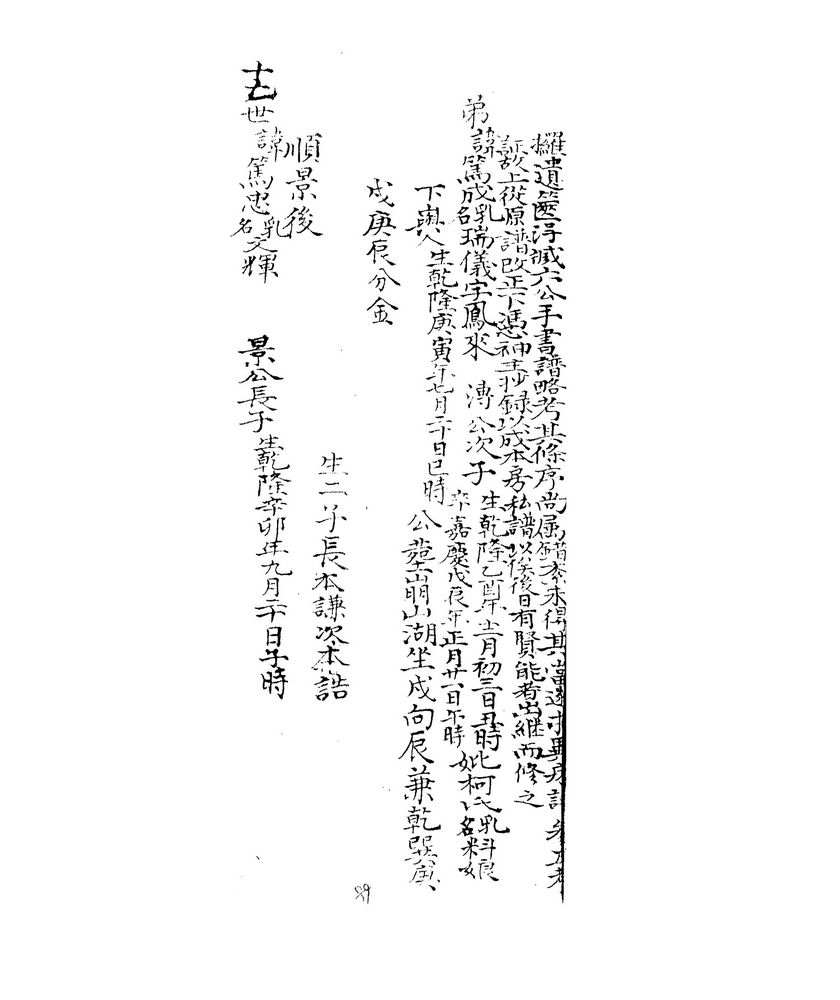 攡遺篋得滅六公手書譜略考其條序尚屬錯紊未得其當遂求異房譜參互考
証故上從原譜改正下憑神主抄錄以成本房私譜以俟後日有賢能者出繼而修之
弟諱篤成乳名瑞儀字鳳來 溥公次子 生乾隆乙酉年十一月初三日丑時 妣柯氏乳名料娘
卒嘉慶戊辰年正月廿六日午時
下輿人生乾隆庚寅年七月二十日巳時 公葬崩山湖坐戌向辰兼乾巽庚
戌庚辰分金
生二子長本謙次本誥
順景後
十五世諱篤忠乳名文輝 景公長子生乾隆辛卯年九月二十日子時
89